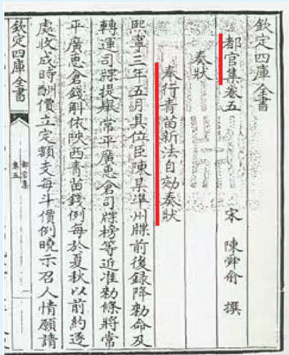 欽定四庫全書
都官集卷五
宋 陳舜俞 撰
奏狀
奉行青苗新法自劾奏狀
熙寧三年五月具位臣陳某準州牒前後錄降勅命及
轉運司牒提舉常平廣惠倉司牒榜等近准勅條將常
平廣惠錢斛依陝西青苗錢例每於夏秋以前約逐
處收成時酬價立定額支每斗價例曉示召人情願請
欽定四庫全書
都官集
卷五